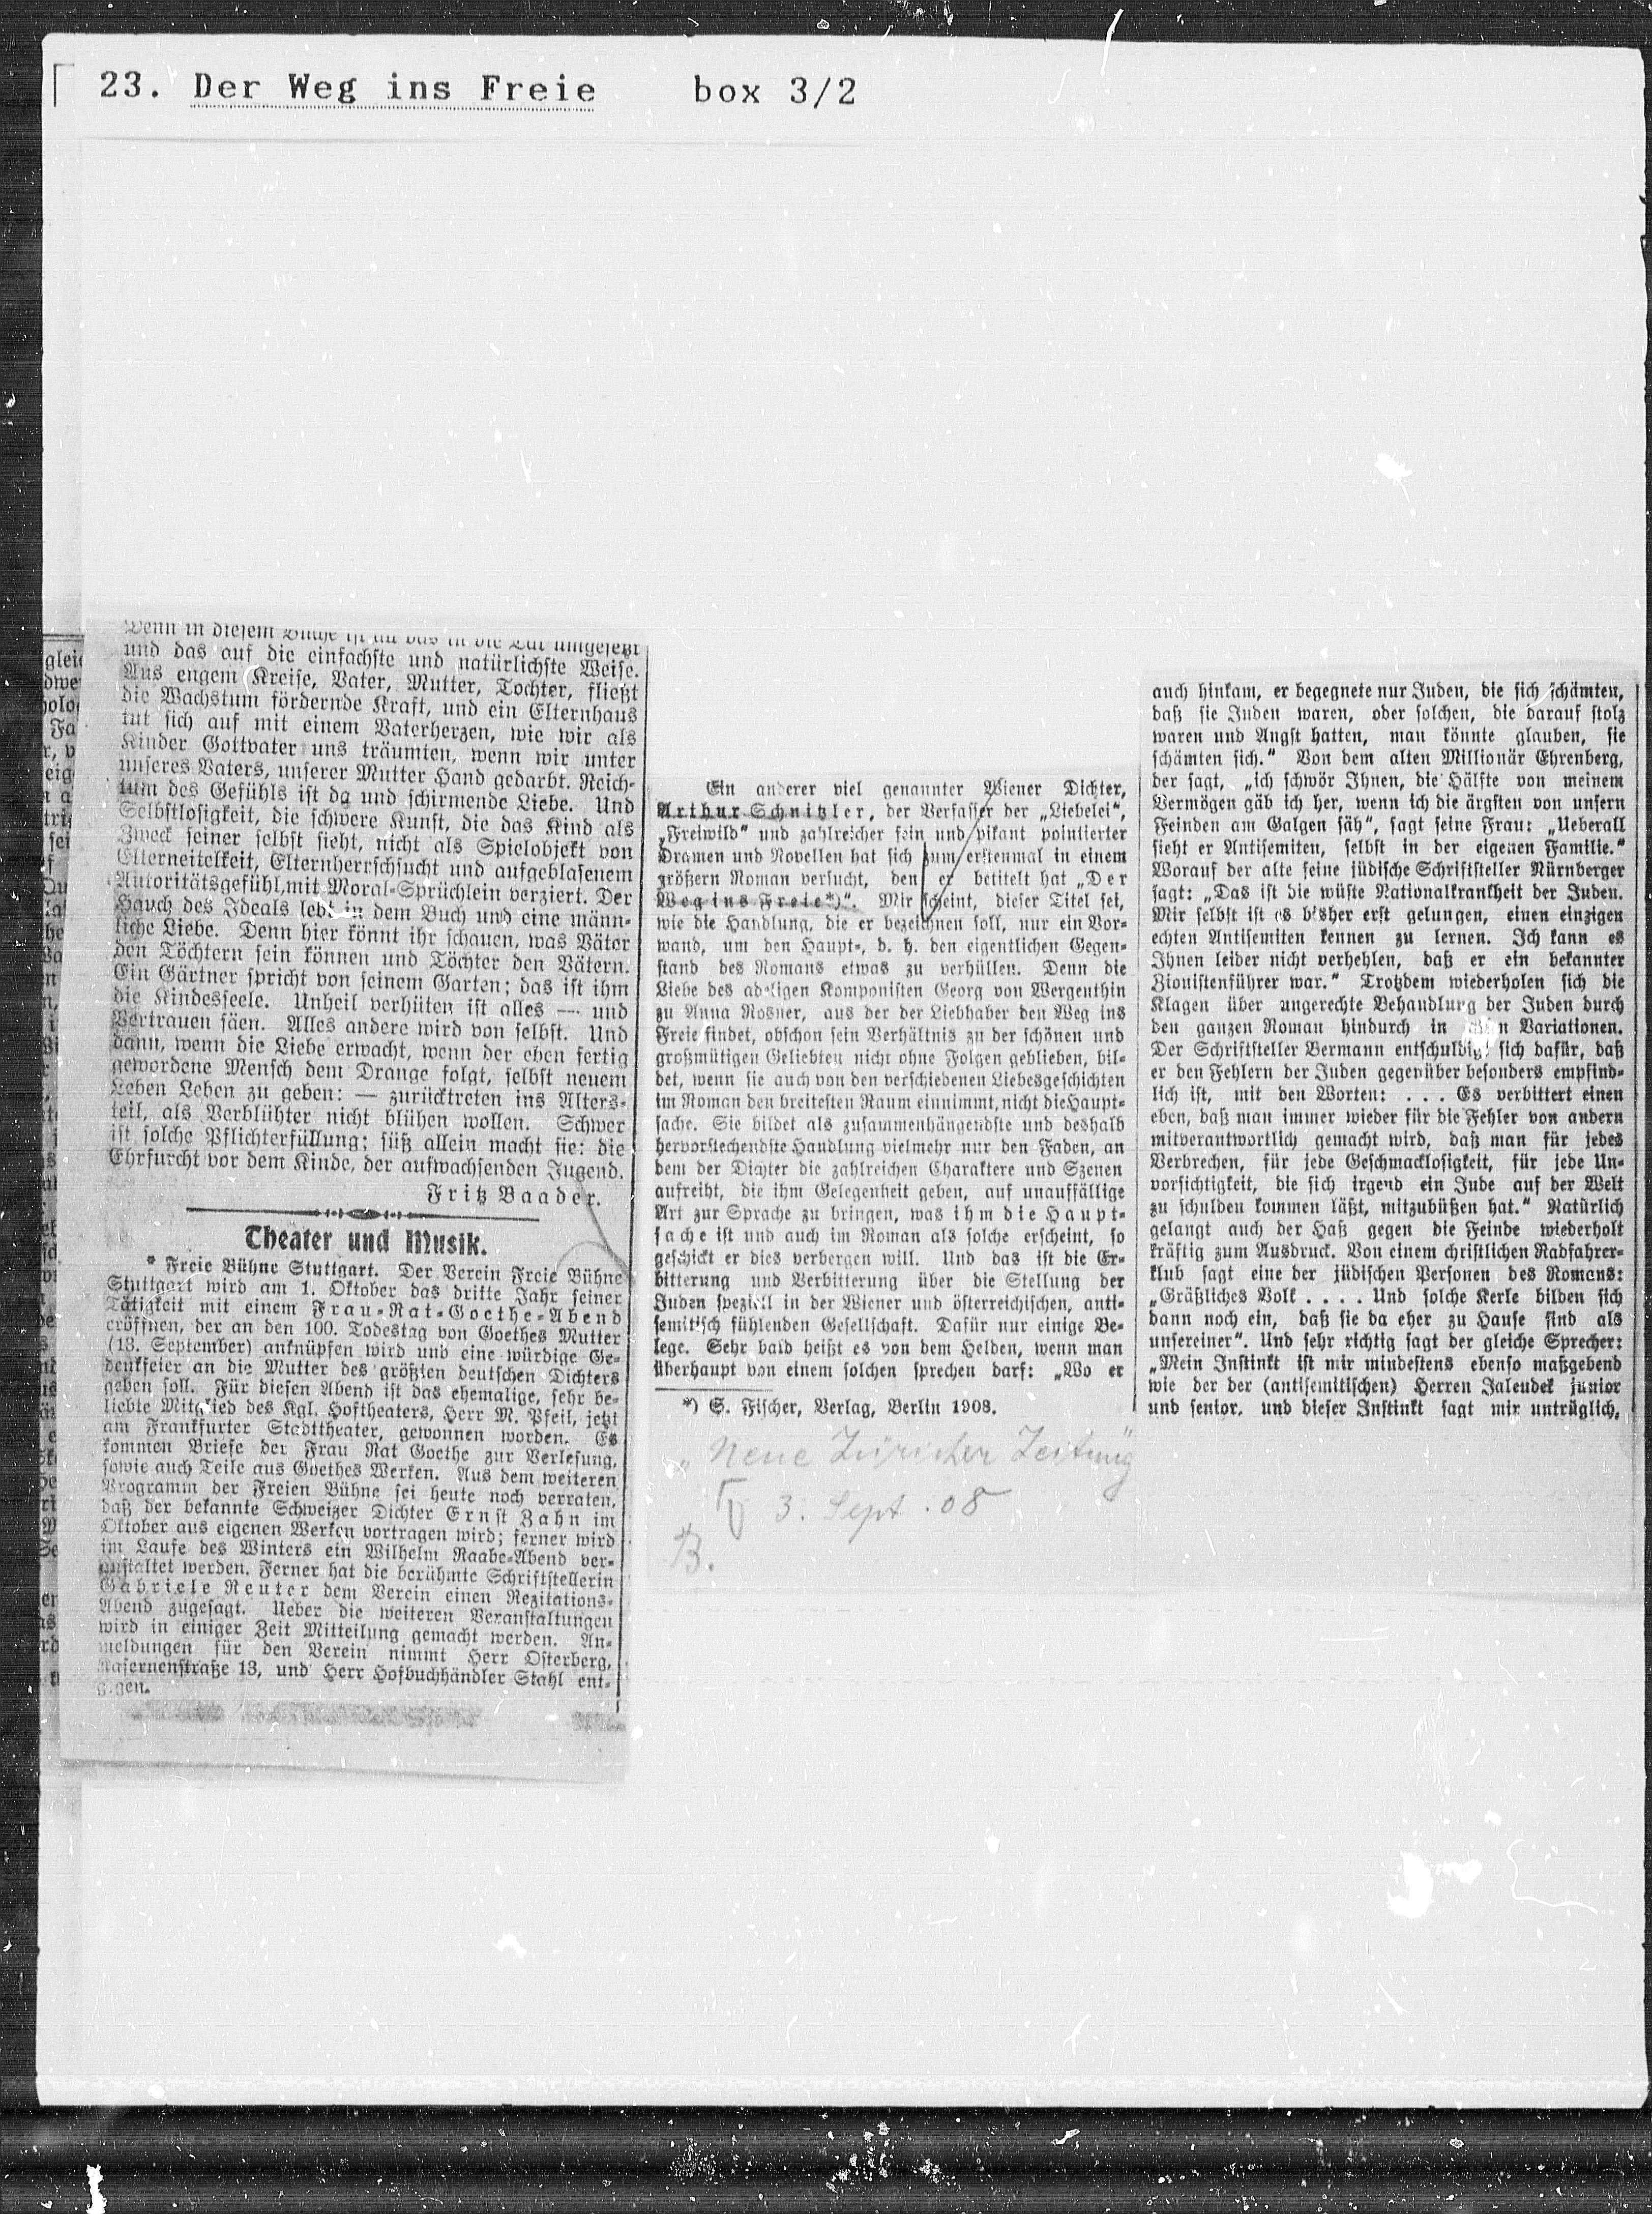 23. Der Weg ins Freie box 3/2
Denn in diesem Buche ist all das in die Tat umgesetzt
und das auf die einfachste und natürlichste Weise.
Aus engem Kreise, Vater, Mutter, Tochter, fließt
die Wachstum fördernde Kraft, und ein Elternhaus
tut sich auf mit einem Vaterherzen, wie wir als
Kinder Gottvater uns träumten, wenn wir unter
unseres Vaters, unserer Mutter Hand gedarbt. Reich-
tum des Gefühls ist da und schirmende Liebe. Und
Selbstlosigkeit, die schwere Kunst, die das Kind als
Zweck seiner selbst sieht, nicht als Spielobjekt von
Elterneitelkeit, Elternherrschsucht und aufgeblasenem
Autoritätsgefühl, mit Moral-Sprüchlein verziert. Der
Hauch des Ideals lebt in dem Buch und eine männ-
liche Liebe. Denn hier könnt ihr schauen, was Väter
den Töchtern sein können und Töchter den Vätern.
Ein Gärtner spricht von seinem Garten; das ist ihm
die Kindesseele. Unheil verhüten ist alles — und
Vertrauen säen. Alles andere wird von selbst. Und
dann, wenn die Liebe erwacht, wenn der eben fertig
gewordene Mensch dem Drange folgt, selbst neuem
Leben Leben zu geben: — zurücktreten ins Alters-
teil, als Verblühter nicht blühen wollen. Schwer
ist solche Pflichterfüllung; süß allein macht sie: die
Ehrfurcht vor dem Kinde, der aufwachsenden Jugend.
Fritz Baader.
Theater und Musik.
* Freie Bühne Stuttgart. Der Verein Freie Bühne
Stuttgart wird am 1. Oktober das dritte Jahr seiner
Tätigkeit mit einem Frau-Rat-Goethe-Abend
eröffnen, der an den 100. Todestag von Goethes Mutter
(13. September) anknüpfen wird und eine würdige Ge-
denkfeier an die Mutter des größten deutschen Dichters
geben soll. Für diesen Abend ist das ehemalige, sehr be-
liebte Mitglied des Kgl. Hoftheaters, Herr M. Pfeil, jetzt
am Frankfurter Stadttheater, gewonnen worden. Es
kommen Briefe der Frau Rat Goethe zur Verlesung,
sowie auch Teile aus Goethes Werken. Aus dem weiteren
Programm der Freien Bühne sei heute noch verraten,
daß der bekannte Schweizer Dichter Ernst Zahn im
Oktober aus eigenen Werken vortragen wird; ferner wird
im Laufe des Winters ein Wilhelm Raabe-Abend ver-
anstaltet werden. Ferner hat die berühmte Schriftstellerin
Gabriele Reuter dem Verein einen Rezitations-
Abend zugesagt. Ueber die weiteren Veranstaltungen
wird in einiger Zeit Mitteilung gemacht werden. An-
meldungen für den Verein nimmt Herr Osterberg,
Kasernenstraße 13, und Herr Hofbuchhändler Stahl ent-
gegen.
Ein anderer viel genannter Wiener Dichter,
Arthur Schnitzler, der Verfasser der „Liebelei“,
„Freiwild“ und zahlreicher fein und pikant pointierter
Dramen und Novellen hat sich zum erstenmal in einem
größern Roman versucht, den er betitelt hat „Der
Weg ins Freie*)“. Mir scheint, dieser Titel sei,
wie die Handlung, die er bezeichnen soll, nur ein Vor-
wand, um den Haupt-, d. h. den eigentlichen Gegen-
stand des Romans etwas zu verhüllen. Denn die
Liebe des adeligen Komponisten Georg von Wergenthin
zu Anna Rosner, aus der der Liebhaber den Weg ins
Freie findet, obschon sein Verhältnis zu der schönen und
großmütigen Geliebten nicht ohne Folgen geblieben, bil-
det, wenn sie auch von den verschiedenen Liebesgeschichten
im Roman den breitesten Raum einnimmt, nicht die Haupt-
sache. Sie bildet als zusammenhängendste und deshalb
hervorstechendste Handlung vielmehr nur den Faden, an
dem der Dichter die zahlreichen Charaktere und Szenen
aufreiht, die ihm Gelegenheit geben, auf unauffällige
Art zur Sprache zu bringen, was ihm die Haupt-
sache ist und auch im Roman als solche erscheint, so
geschickt er dies verbergen will. Und das ist die Er-
bitterung und Verbitterung über die Stellung der
Juden speziell in der Wiener und österreichischen, anti-
semitisch fühlenden Gesellschaft. Dafür nur einige Be-
lege. Sehr bald heißt es von dem Helden, wenn man
überhaupt von einem solchen sprechen darf: „Wo er
*) S. Fischer, Verlag, Berlin 1908.
„Neue Züricher Zeitung“
3. Sept. 08
B.
auch hinkam, er begegnete nur Juden, die sich schämten,
daß sie Juden waren, oder solchen, die darauf stolz
waren und Angst hatten, man könnte glauben, sie
schämten sich.“ Von dem alten Millionär Ehrenberg,
der sagt, „ich schwör Ihnen, die Hälfte von meinem
Vermögen gäb ich her, wenn ich die ärgsten von unsern
Feinden am Galgen säh“, sagt seine Frau: „Ueberall
sieht er Antisemiten, selbst in der eigenen Familie.“
Worauf der alte feine jüdische Schriftsteller Nürnberger
sagt: „Das ist die wüste Nationalkrankheit der Juden.
Mir selbst ist es bisher erst gelungen, einen einzigen
echten Antisemiten kennen zu lernen. Ich kann es
Ihnen leider nicht verhehlen, daß er ein bekannter
Zionistenführer war.“ Trotzdem wiederholen sich die
Klagen über ungerechte Behandlung der Juden durch
den ganzen Roman hindurch in Variationen.
Der Schriftsteller Bermann entschuldigt sich dafür, daß
er den Fehlern der Juden gegenüber besonders empfind-
lich ist, mit den Worten: . . . Es verbittert einen
eben, daß man immer wieder für die Fehler von andern
mitverantwortlich gemacht wird, daß man für jedes
Verbrechen, für jede Geschmacklosigkeit, für jede Un-
vorsichtigkeit, die sich irgend ein Jude auf der Welt
zu schulden kommen läßt, mitzubüßen hat.“ Natürlich
gelangt auch der Haß gegen die Feinde wiederholt
kräftig zum Ausdruck. Von einem christlichen Radfahrer-
klub sagt eine der jüdischen Personen des Romans:
„Gräßliches Volk . . . . Und solche Kerle bilden sich
dann noch ein, daß sie da eher zu Hause sind als
unsereiner“. Und sehr richtig sagt der gleiche Sprecher:
„Mein Instinkt ist mir mindestens ebenso maßgebend
wie der der (antisemitischen) Herren Jalaudek junior
und senior, und dieser Instinkt sagt mir untrüglich,